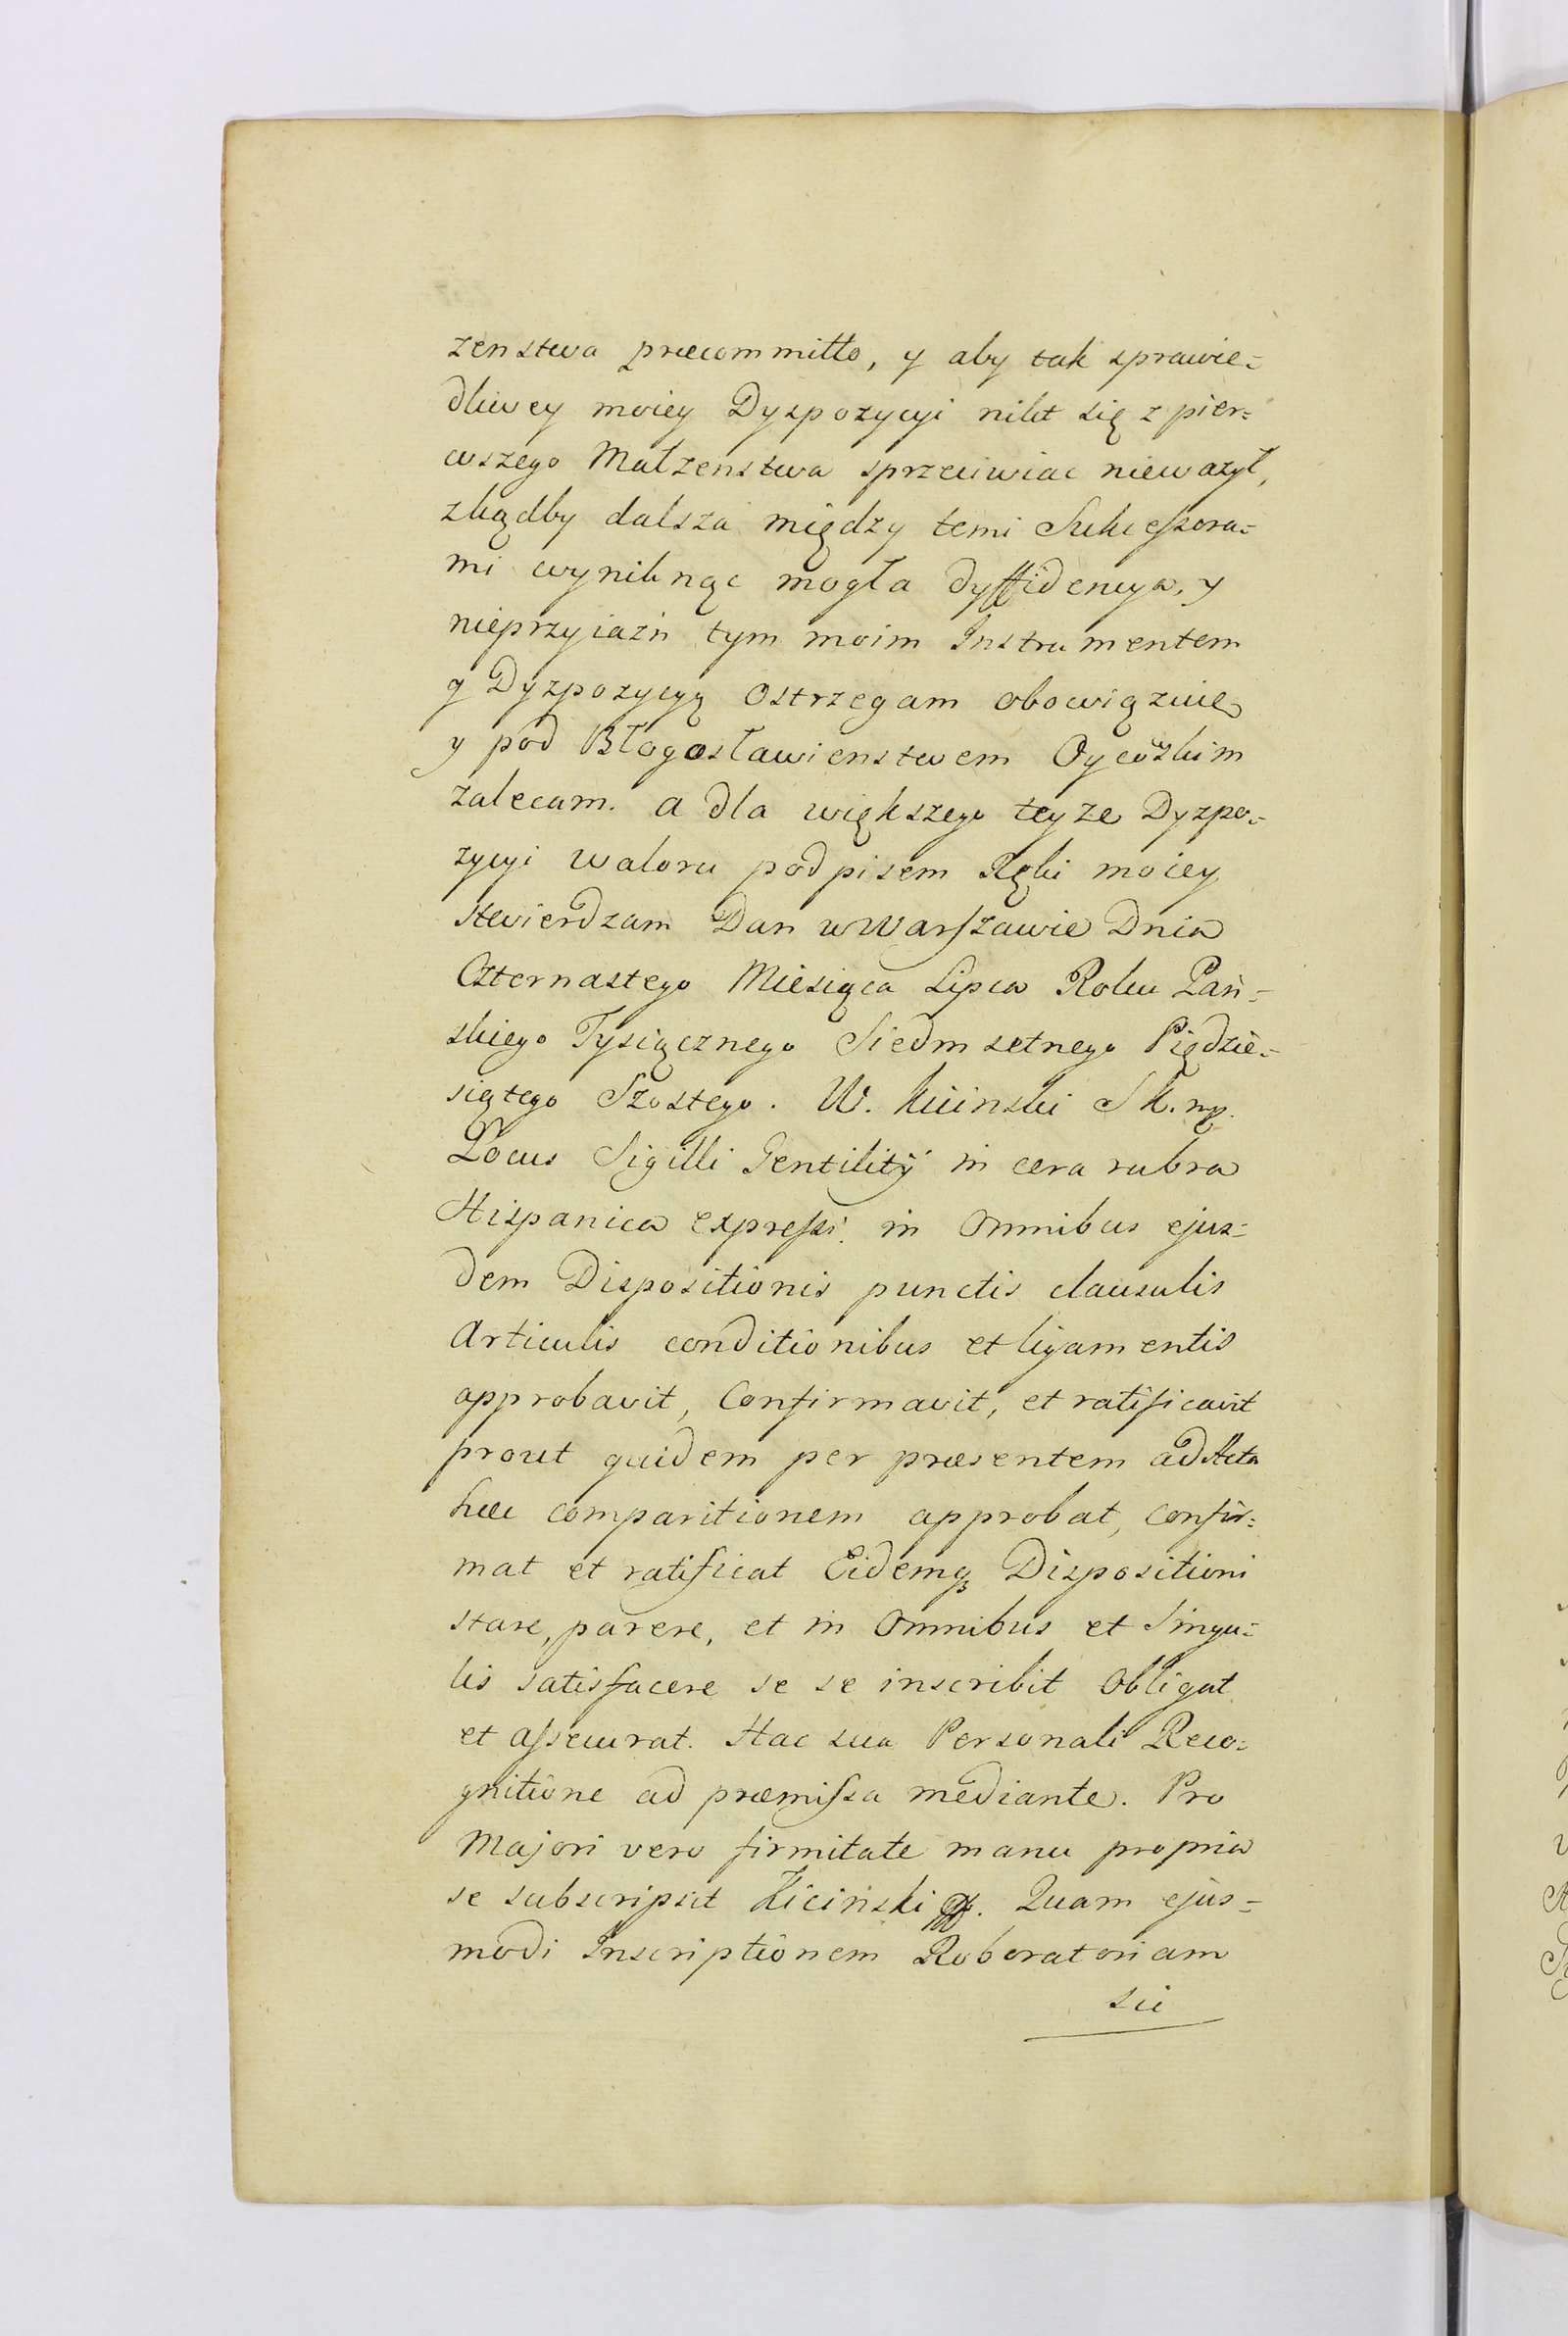 zenstwa præcommitto, y aby tak sprawie=
dliwey moiey Dyspozycyi nikt się z pier=
wszego Małzenstwa sprzeciwiac nieważył,
zkądby dalsza między temi Sukcessora=
mi wyniknąc mogła dyffidencya, y
nieprzyiaźń tym moim Instrumentem
y Dyzpozycyą Ostrzegam obowiązuię
y pod Błogosławienstwem Oycowskim
zalecam. a dla większego teyze Dyzpo=
zycyi waloru podpisem Ręki moiey
stwierdzam Dan w Warszawie Dnia
Czternastego Miesiąca Lipca Roku Pań=
skiego Tysiącznego Siedmsetnego Pięćdzie=
siątego Szostego. W. Kicinski S K. mp.
Locus Sigilli Gentilitij in cera rubra
Hispanica expressi. in Omnibus ejus=
dem Dispositionis punctis clausulis
Articulis conditionibus et ligamentis
approbavit, Confirmavit, et ratificavit
prout quidem per præsentem ad Acta
hæc comparitionem approbat, confir=
mat et ratificat Eidemq3 Dispositioni
stare, parere, et in Omnibus et Singu=
lis satisfacere se se inscribit Obligat
et assecurat. Hac sua Personali Reco=
gnitione ad præmissa mediante. Pro
Majori vero firmitate manu propria
se subscripsit Kiciński. Quam ejus=
modi Inscriptionem Roboratoriam
sic